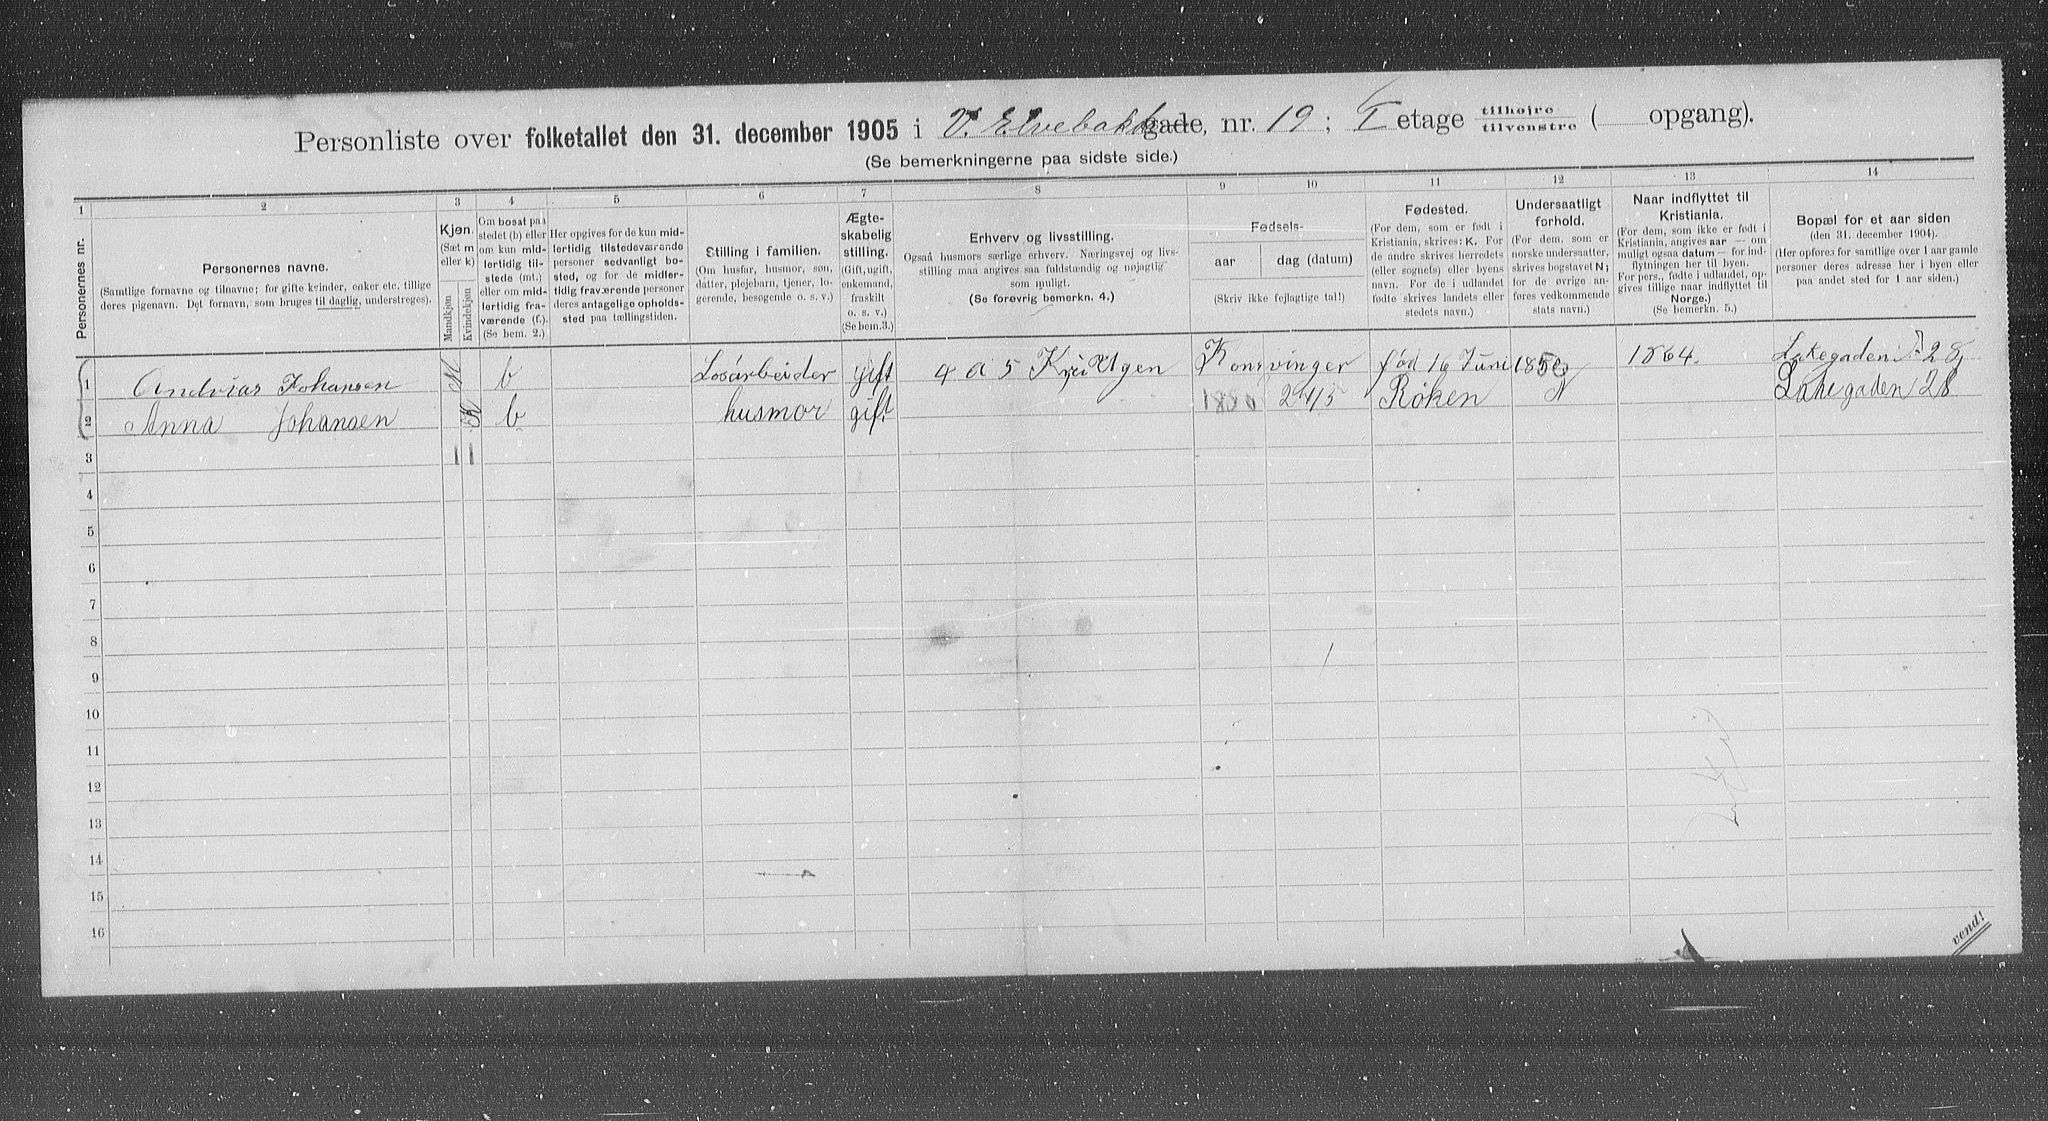 Personliste over folketallet den 31. december 1905 i V. Elvebakkgade, nr. 19; I etage tilhøjre / tilvenstre ( opgang).
(Se bemerkningerne paa sidste side.)
1 2 3 4 5 6 7 8 9 10 11 12 13 14
Personernes nr.
Personernes navne.
(Samtlige fornavne og tilnavne; for gifte kvinder, enker etc. tillige
deres pigenavn. Det fornavn, som bruges til daglig, understreges).
Kjøn.
(Sæt m
eller k)
Mandkjøn
Kvindekjøn
Om bosat paa
stedet (b) eller
om kun mid-
lertidig til-
stede (mt.)
eller om mid-
lertidig fra-
værende (f.).
(Se bem. 2.)
Her opgives for de kun mid-
lertidig tilstedeværende
personer sedvanligt bo-
sted, og for de midler-
tidig fraværende personer
deres antagelige opholds-
sted paa tællingstiden.
Stilling i familien.
(Om husfar, husmor, søn,
datter, plejebarn, tjener, lo-
gerende, besøgende o. s. v.)
Ægte-
skabelig
stilling.
(Gift, ugift,
enkemand,
fraskilt
o. s. v.)
(Se bem.3.)
Erhverv og livsstilling.
Ogsaa husmors særlige erhverv. Næringsvej og livs-
stilling maa angives saa fuldstændig og nøjagtig
som muligt.
(Se forøvrig bemerkn. 4.)
Fødsels-
aar
dag (datum)
(Skriv ikke fejlagtige tal!)
Fødested.
(For dem, som er født i
Kristiania, skrives: K. For
de andre skrives herredets
(eller sognets) eller byens
navn. For de i udlandet
fødte skrives landets eller
stedets navn.)
Undersaatligt
forhold.
(For dem, som er
norske undersaatter,
skrives bogstavet N;
for de øvrige an-
føres vedkommende
stats navn.)
Naar indflyttet til
Kristiania.
(For dem, som ikke er født i
Kristiania, angives aar — om
muligt ogsaa datum — for ind-
flytningen her til byen.
For pers., fødte i udlandet, op-
gives tillige naar indflyttet til
Norge.)
(Se bemerkn. 5.)
Bopæl for et aar siden
(den 31. december 1904).
(Her opføres for samtlige over 1 aar gamle
personer deres adresse her i byen eller
paa andet sted for 1 aar siden.)
1 Andrias Johansen M b Losarbeider gift 4 a 5 Kongsvinger fød 16 Juni 1850 1864. Lakegaden 28,
2 Anna Johansen K b husmor gift 1850 24/5 Røken N Lakegaden 28
3
4
5
6
7
8
9
10
11
12
13
14
15
16
vend!